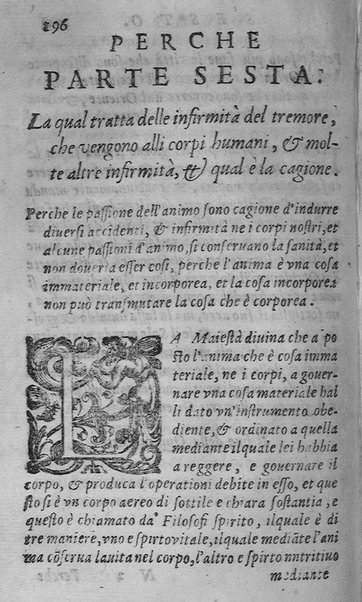 196
PERCHE
PARTE SESTA.
La qual tratta delle infirmità del tremore,
che vengono alli corpi humani, & mol-
te altre infirmità, & qual è la cagione.
Perche le passione dell'animo sono cagione d'indurre
diuersi accidenti, & infirmità ne i corpi nostri, et
alcune passioni d'animo, si conseruano la sanità, et
non doueria esser così, perche l'anima è vna cosa
immateriale, et incorporea, et la cosa incorporea
non può transmutare la cosa che è corporea.
LA Maiestà diuina che a'po
sto l'anima che è cosa imma
teriale, ne i corpi, a gouer-
nare vna cosa materiale hal
li dato vn'instrumento obe-
diente, & ordinato a quella
mediante ilquale lei habbia
a reggere, e gouernare il
corpo, & produca l'operationi debite in esso, et que
sto si è vn corpo aereo di sottile e chiara sostantia, e
questo è chiamato da' Filosofi spirito, ilquale è di
tre maniere, vno e spirto vitale, ilquale mediãte l'ani
ma cõserua la vita nel corpo, l'altro e spirto nntritiuo
mediante